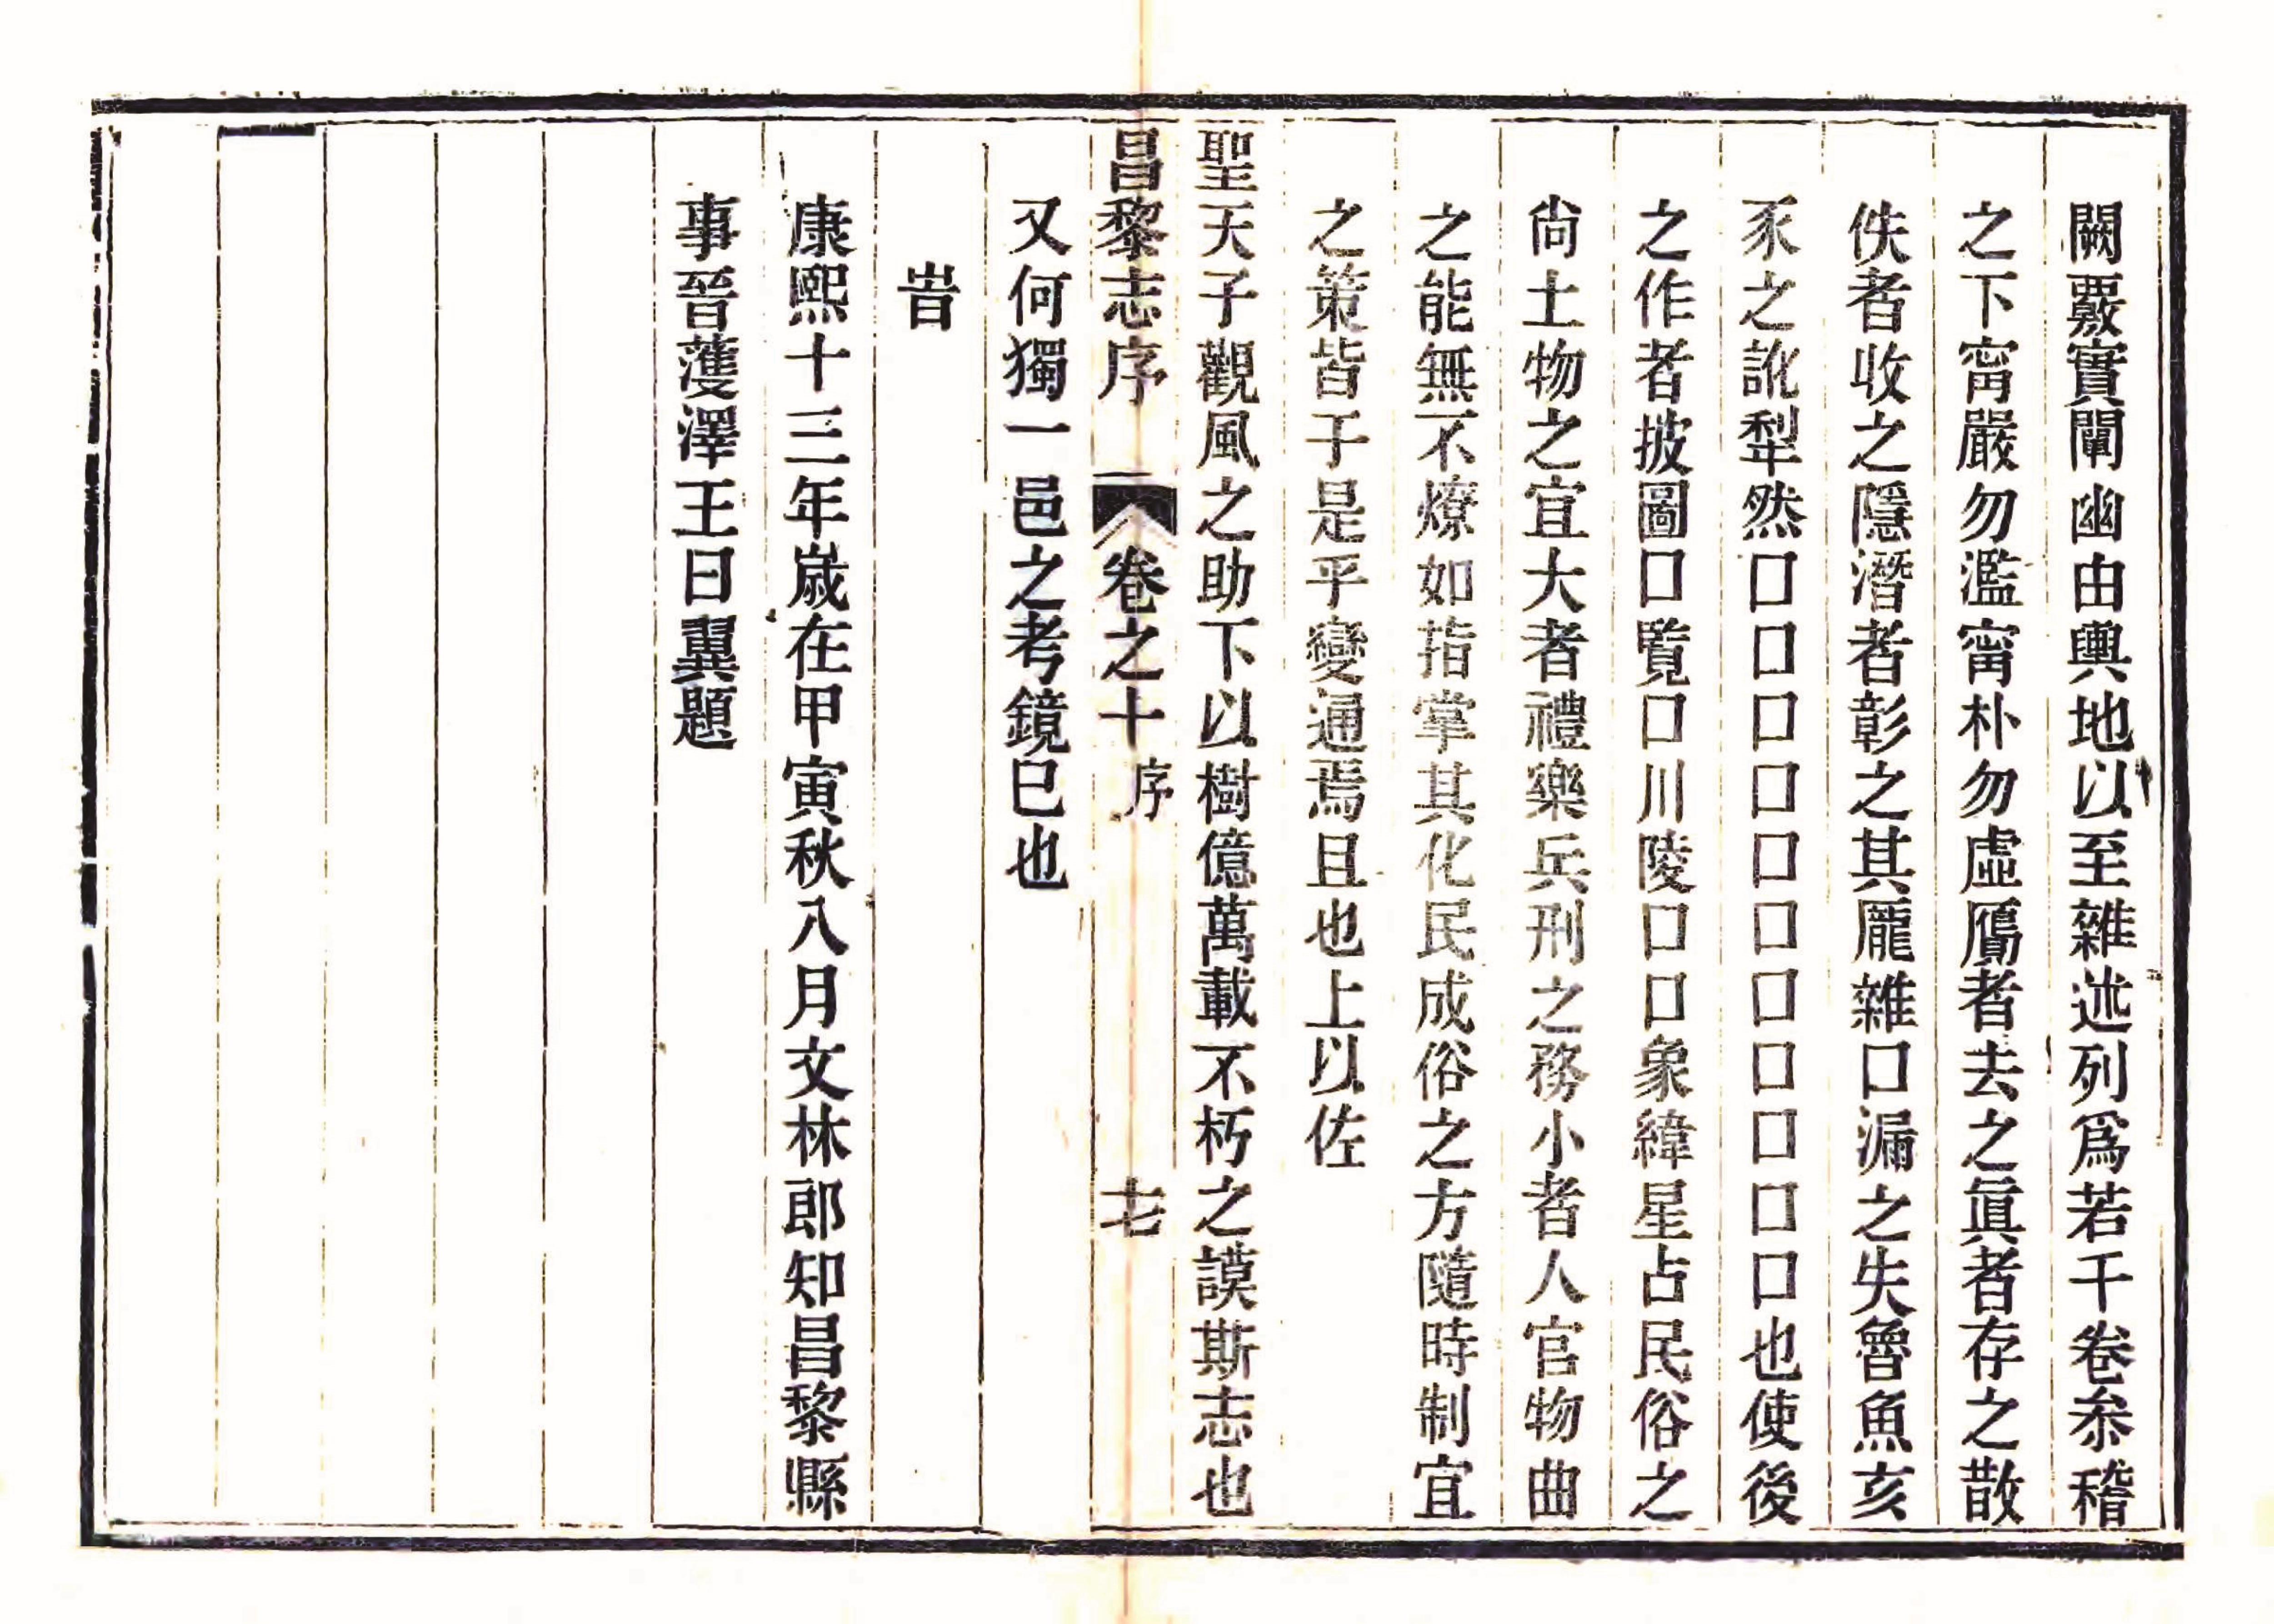 闕覈實闡幽由輿地以至雜述列爲若干卷叅稽
之下甯嚴勿濫甯朴勿虛贋者去之眞者存之散
佚者收之隱潛者彰之其厖雜口漏之失魯魚亥
豕之訛犁然口口口口口口口口口口口也使後
之作者披圖口覽口川陵口口象緯星占民俗之
尙土物之宜大者禮樂兵刑之務小者人官物曲
之能無不燎如指掌其化民成俗之方隨時制宜
之策皆于是乎變通焉且也上以佐
聖天子觀風之助下以樹億萬載不朽之謨斯志也
昌黎志序 卷之十 序 七
又何獨一邑之考鏡巳也
旹
康熙十三年歲在甲寅秋八月文林郎知昌黎縣
事晉濩澤王曰翼題